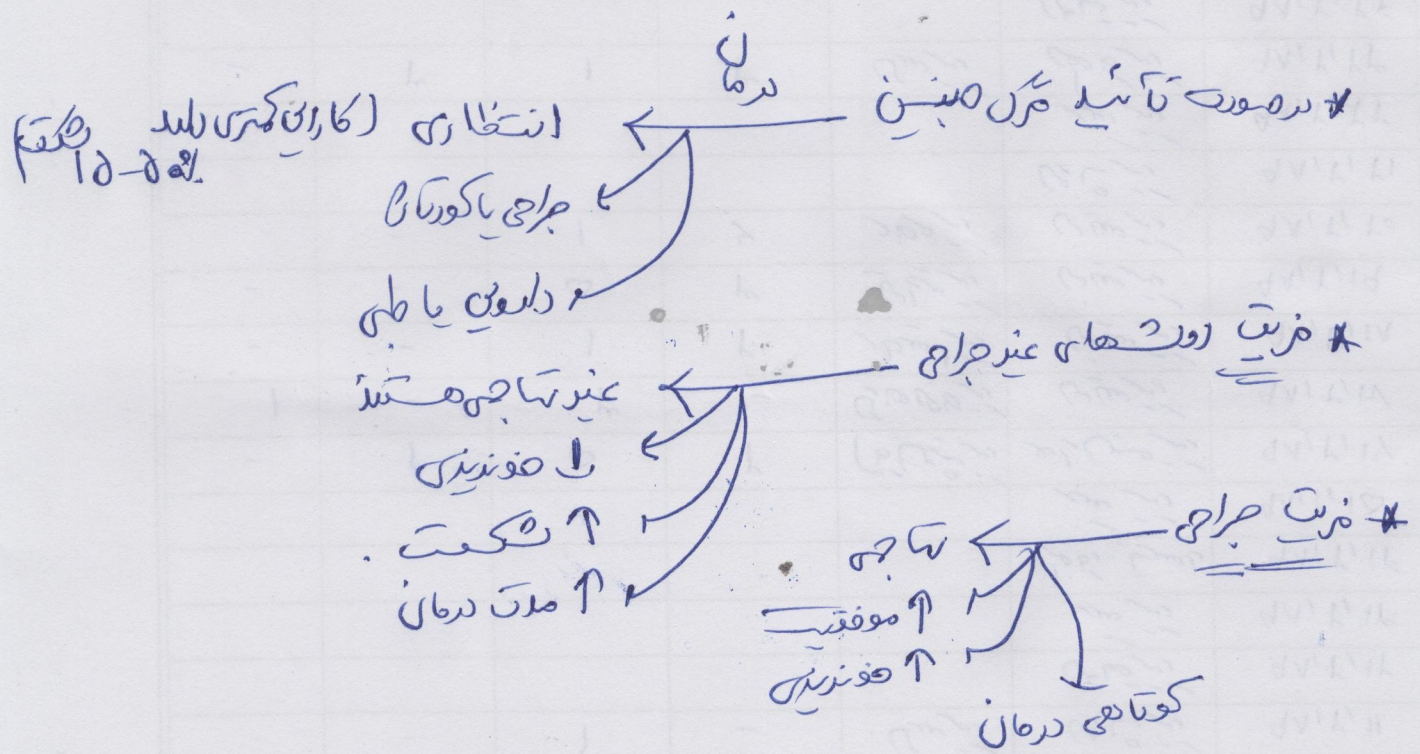 * در صورت تأئید مرگ جنین درمان انتظاری (کارایی کمتری دارد
۱۵-۵۰%
جراحی یا کورتاژ
دارویی یا طبی
* مزیت روشهای غیر جراحی غیر تهاجمی هستند
↓ خونریزی
↑ شکست
↑ مدت درمان
* مزیت جراحی تهاجمی
↑ موفقیت
↑ خونریزی
کوتاهی درمان